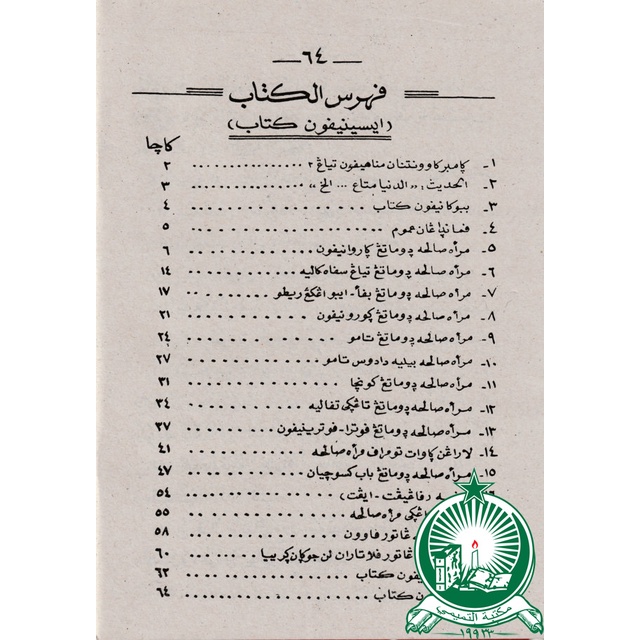 — ٦٤ —
فهرس الكتاب
(ايسينيفون كتاب)
كاچا
١ــ ڮامبر كاوونتنان مناهيفون تياڠ ٢ ٢
٢ــ الحديث: «الدنيا متاع ... الخ» ٣
٣ــ ببوكانيفون كتاب ٤
٤ــ عموم ٥
٥ــ مرأه صالحه دوماتڠ ڮاروانيفون ٦
٦ــ مرأه صالحه دوماتڠ تياڠ سفاه كاليه ١٤
٧ــ مرأه صالحه دوماتڠ بفأ - ايبو اڠكڠ ١٧
٨ــ مرأه صالحه دوماتڠ ٢١
٩ــ مرأه صالحه دوماتڠ تامو ٢٤
١٠ــ مرأه صالحه بيليه دادوس تامو ٢٧
١١ــ مرأه صالحه دوماتڠ كونچا ٣١
١٢ــ مرأه صالحه دوماتڠ تاڠڮي تفاليه ٣٤
١٣ــ مرأه صالحه دوماتڠ فوترا - فوترينيفون ٣٧
١٤ــ لاراڠن ڮاوات تومراف مرأه صالحه ٤١
١٥ــ مرأه صالحه دوماتڠ باب كسوچيان ٤٧
٥٤
مرأه صالحه ٥٥
ڠاتور فاوون ٥٨
ڠاتور فلاتاران لن ٦٠
كتاب ٦٢
كتاب ٦٤
مكتبة التميمي
١٩٩٣